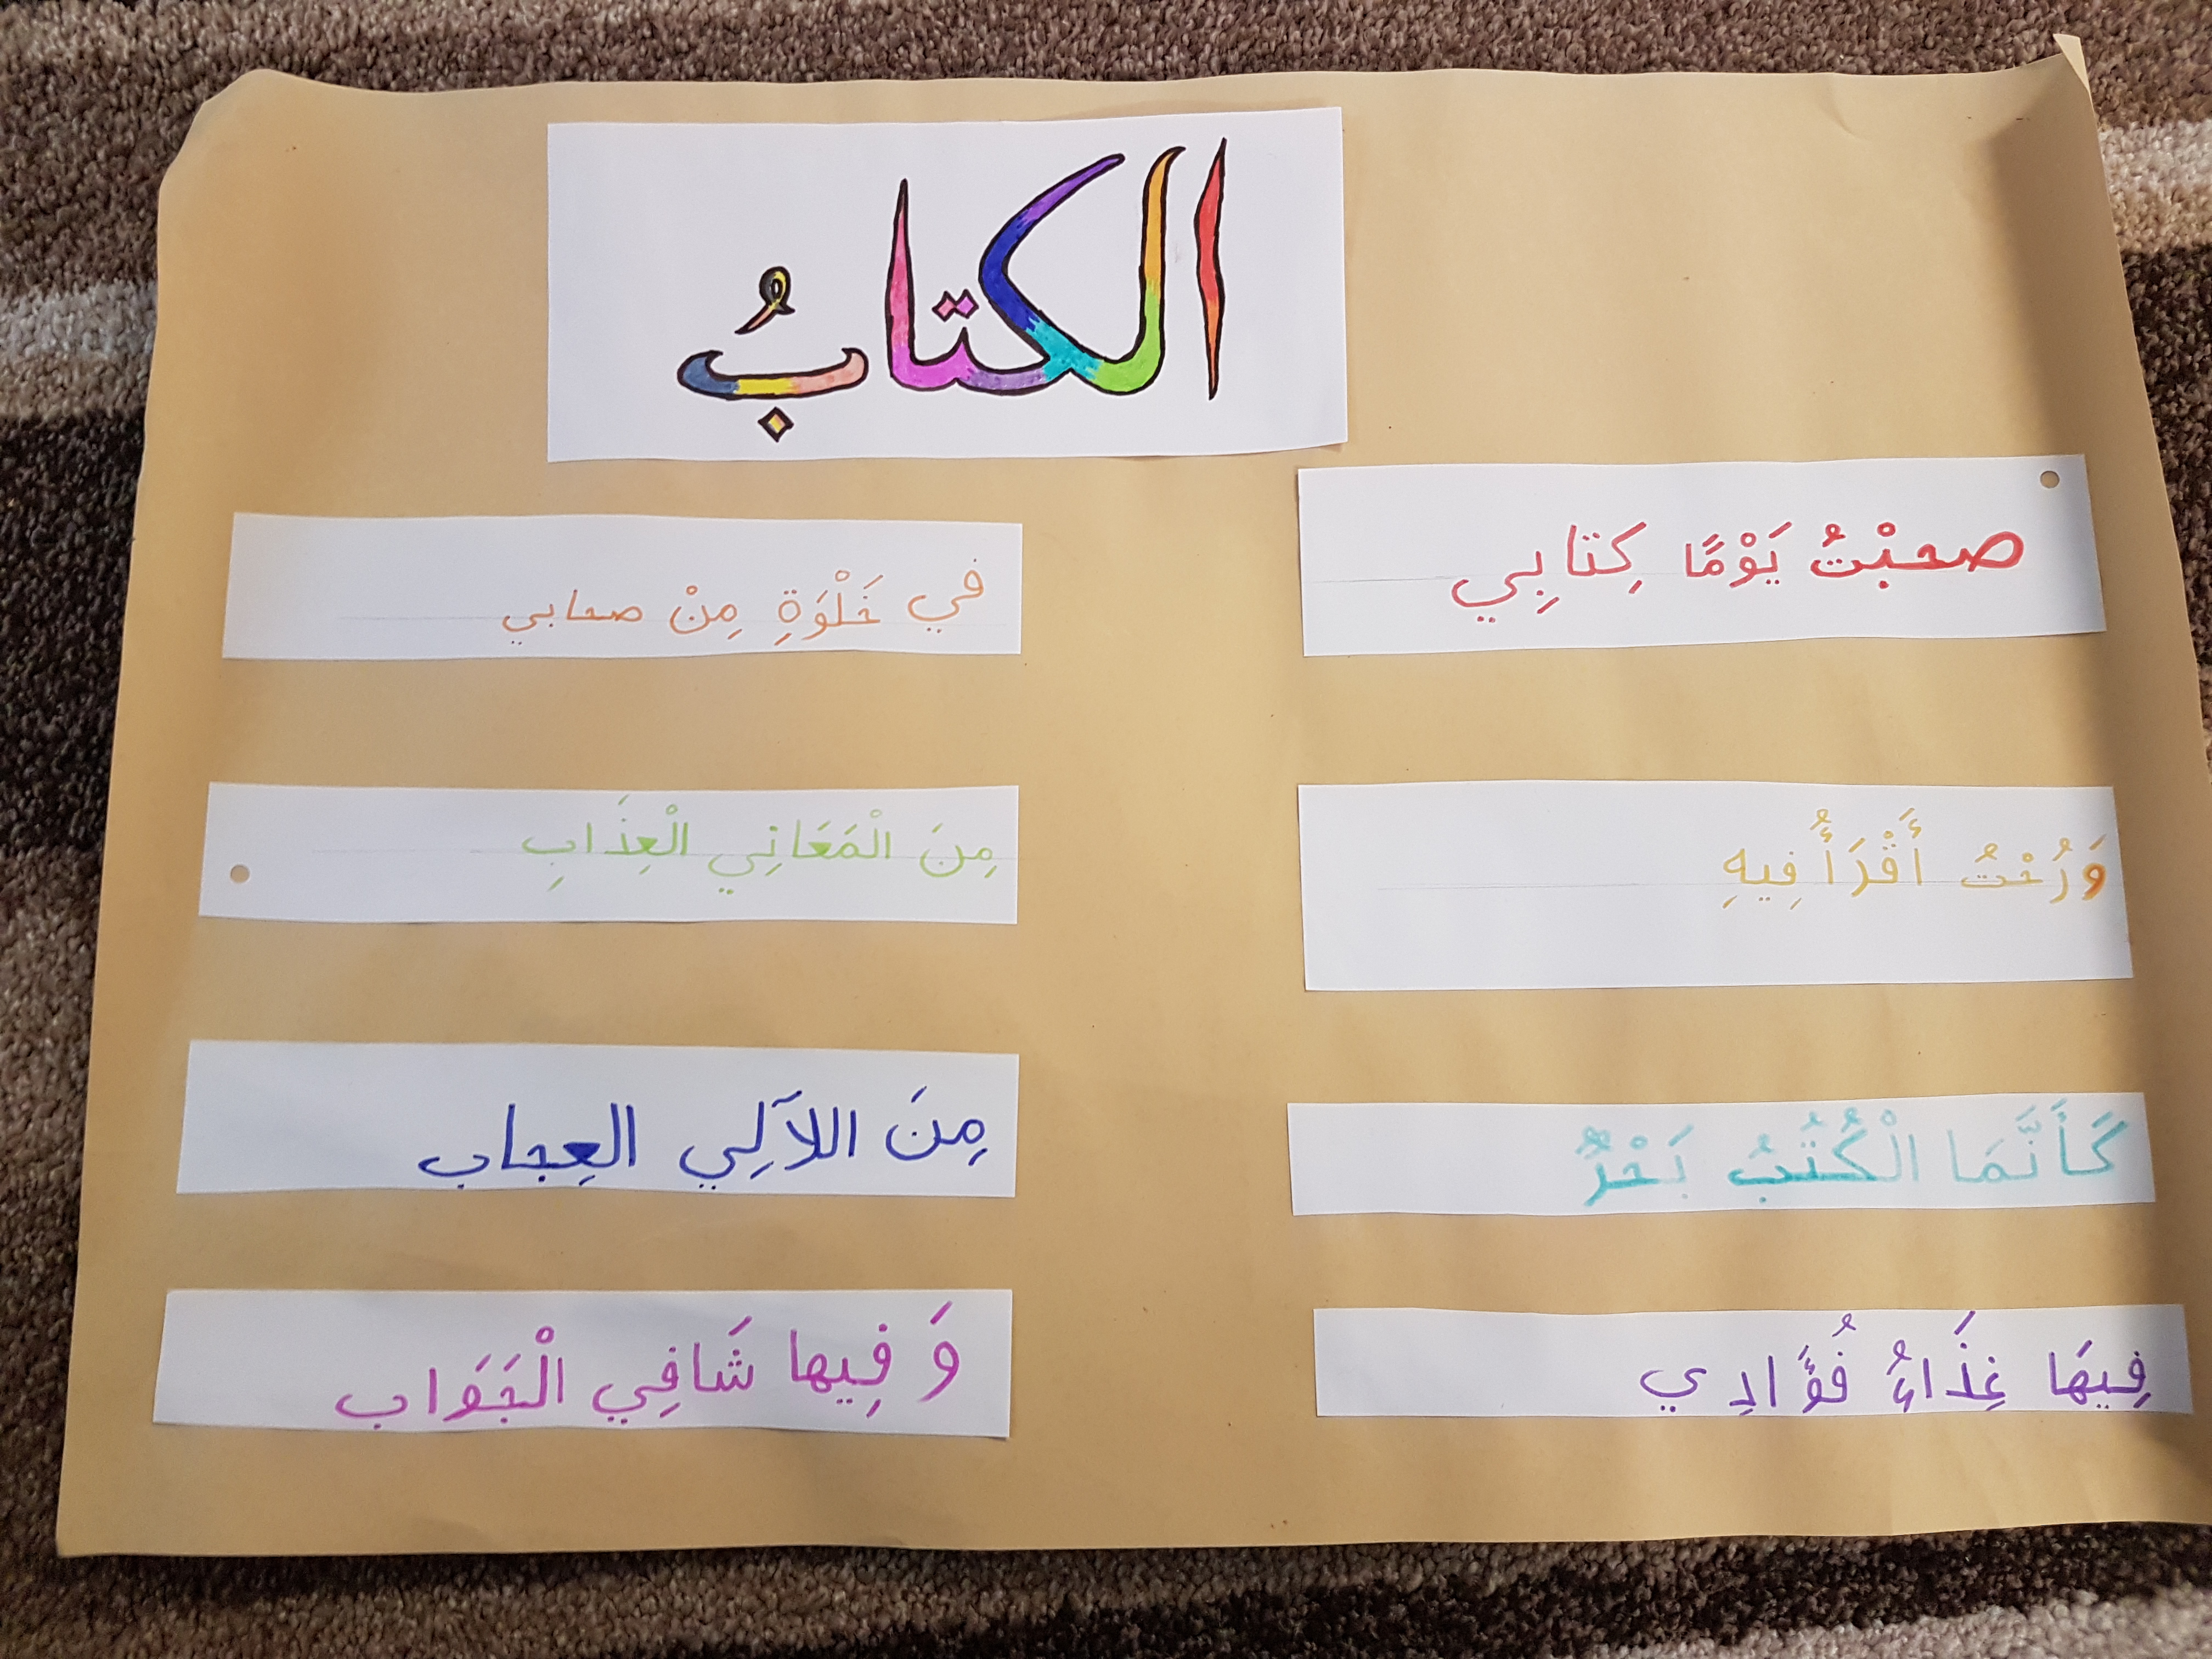 الكتابُ
صحبْتُ يَوْمًا كِتابِي
في خَلْوَةِ مِنْ صحابي
وَرُحْتُ أَقْرَأُ فِيهِ
مِنَ الْمَعَانِي الْعِذَابِ
كَأَنَّمَا الْكُتُبُ بَحْرٌ
مِنَ اللآلِي العِجاب
فِيهَا غِذَاءُ فُؤَادِي
وَ فِيها شَافِي الْجَوَاب